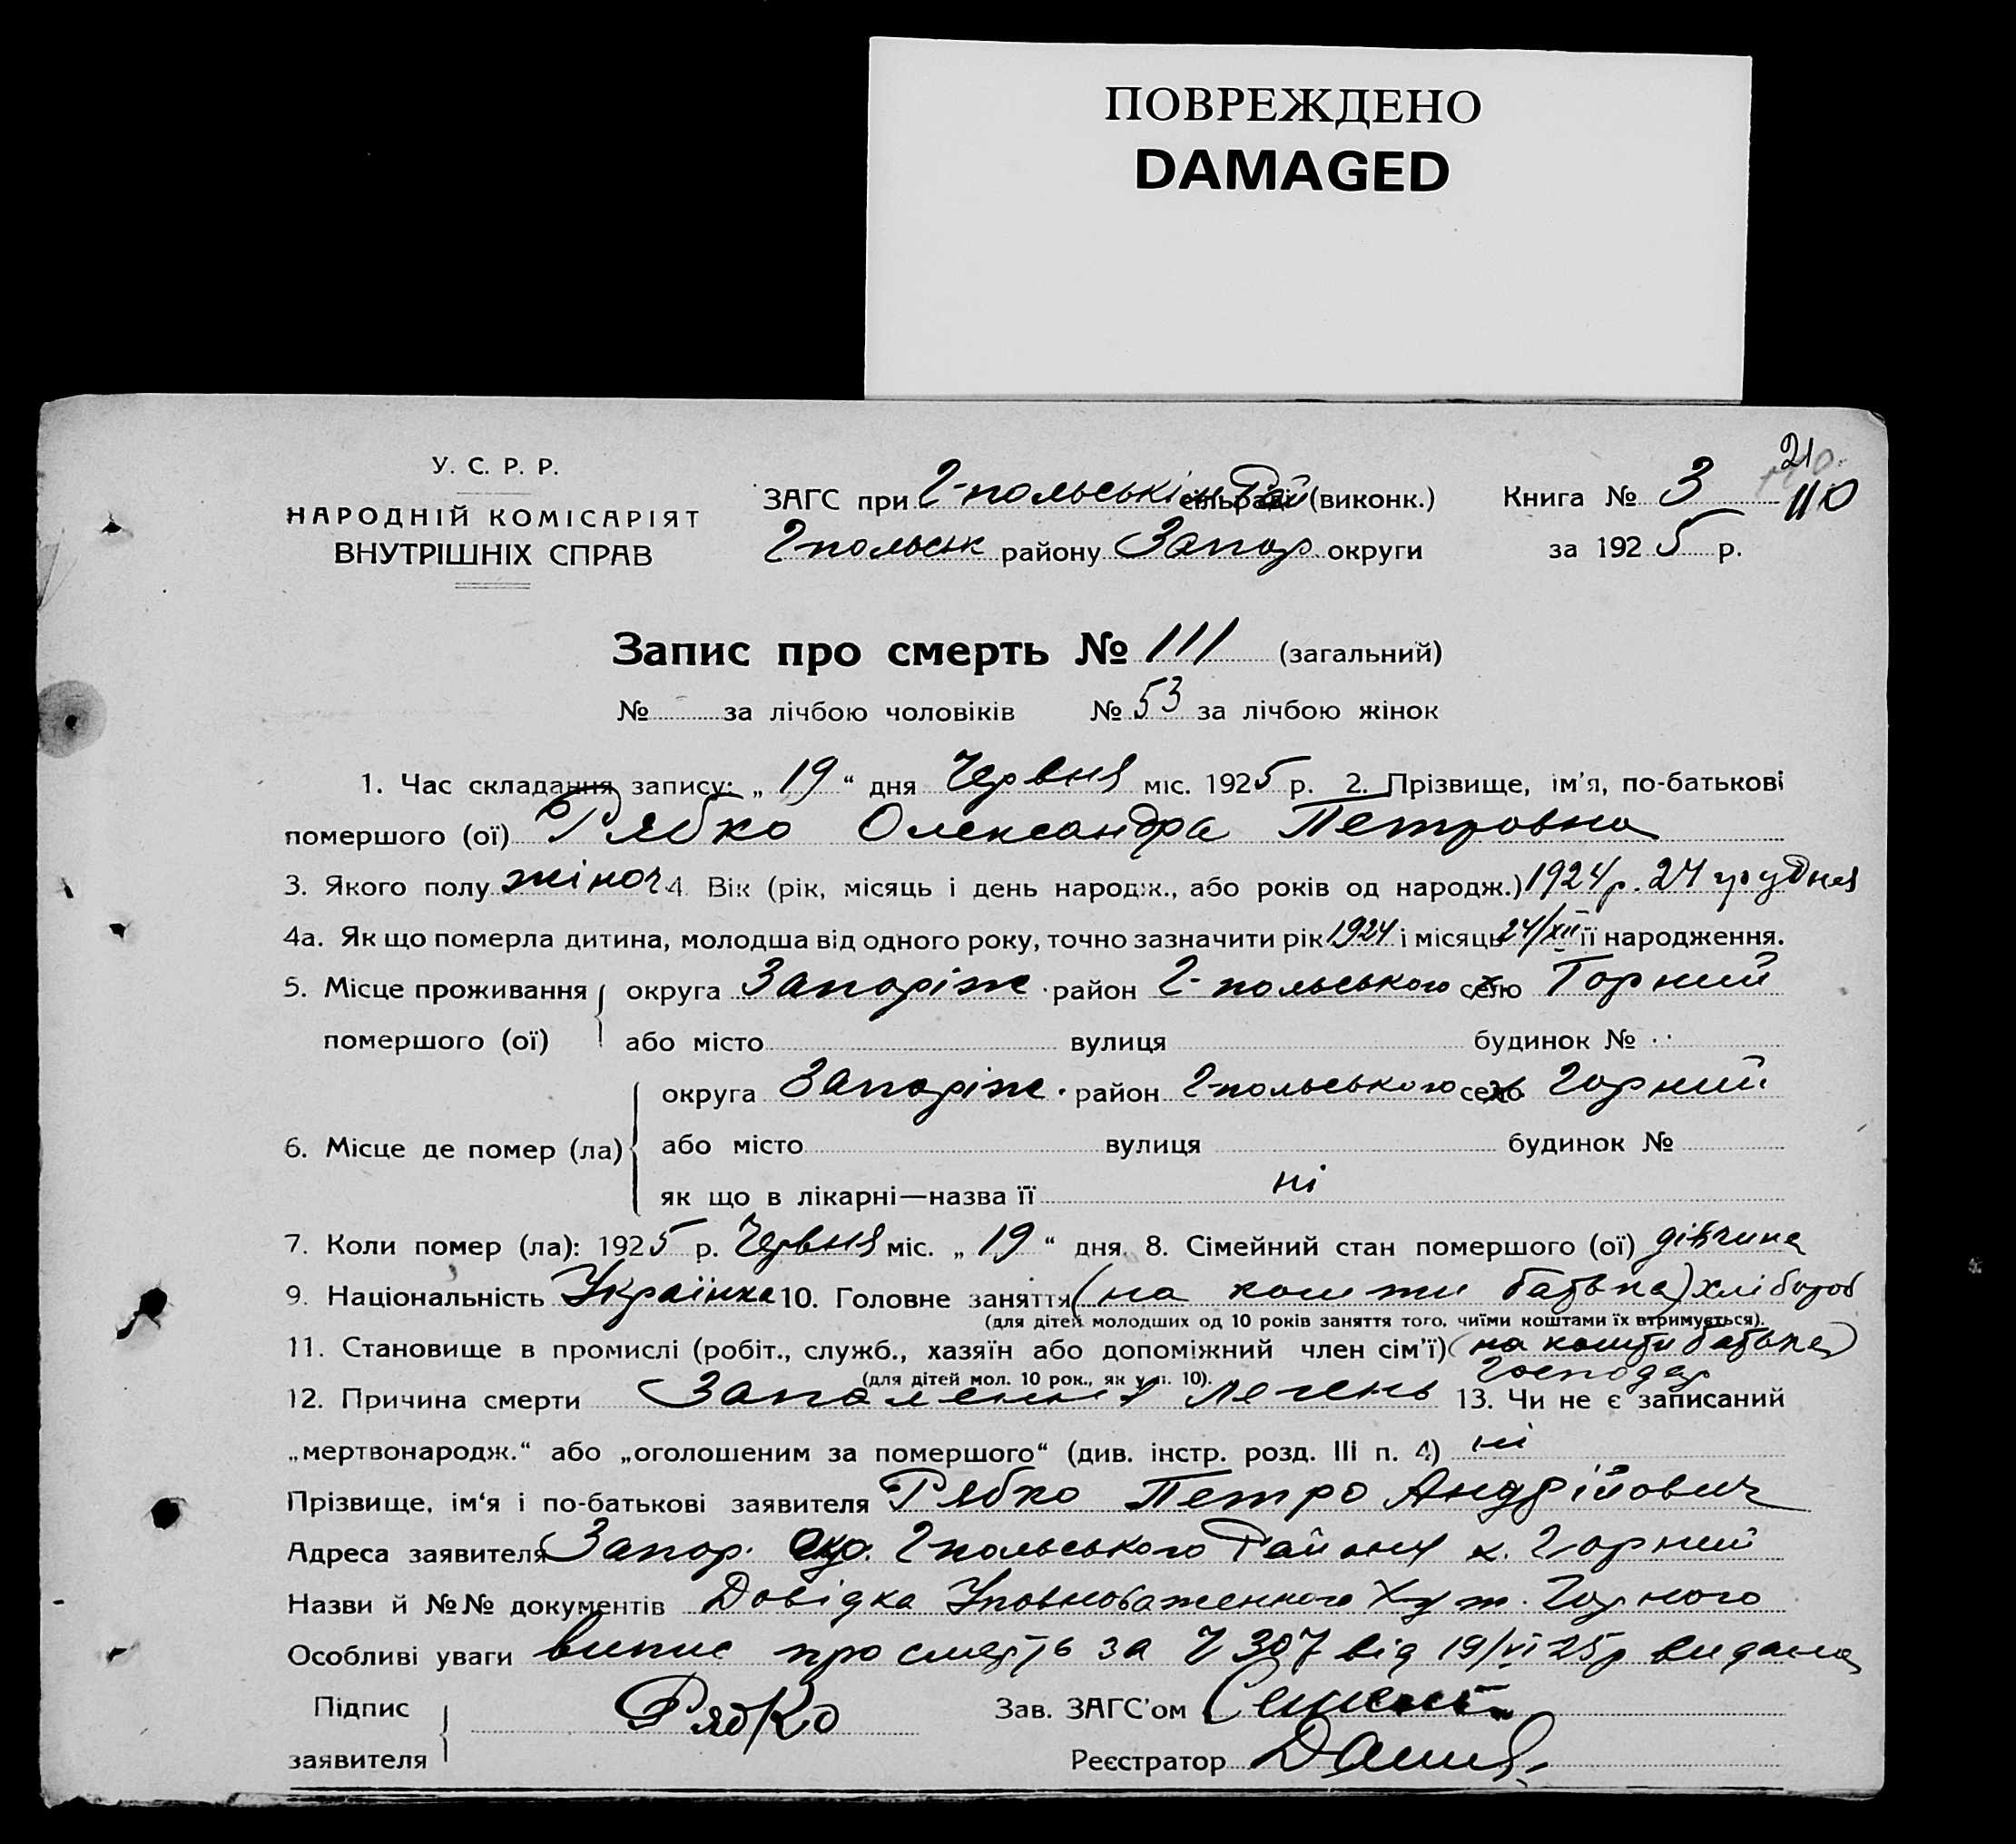 ПОВРЕЖДЕНО
DAMAGED
21
110
У. С. Р. Р.
НАРОДНІЙ КОМІСАРІЯТ
ВНУТРІШНІХ СПРАВ
ЗАГС при Г-польськім Рай (виконк.)
Г-польськ району Запор округи
Книга № 3
за 1925 р.
Запис про смерть № 111 (загальний)
№ за лічбою чоловіків № 53 за лічбою жінок
1. Час складання запису: „ 19 “ дня Червня міс. 1925 р. 2. Прізвище, ім’я, по-батькові
помершого (ої) Рябко Олександра Петровна
3. Якого полу жіноч 4. Вік (рік, місяць і день народж., або років од народж.) 1924 р. 24 грудня
4а. Як що померла дитина, молодша від одного року, точно зазначити рік 1924 і місяць 24/XII її народження.
5. Місце проживання помершого (ої) округа Запоріж. район Г-польського село Горний
або місто вулиця будинок №
6. Місце де помер (ла) округа Запоріж. район Г-польського село Горний
або місто вулиця будинок №
як що в лікарні—назва її ні
7. Коли помер (ла): 1925 р. Червня міс. „ 19 “ дня 8. Сімейний стан помершого (ої) дівчина
9. Національність Українка 10. Головне заняття (на кошти батька) хлібороб
(для дітей молодших од 10 років заняття того, чиїми коштами їх втримується).
11. Становище в промислі (робіт., служб., хазяїн або допоміжний член сім’ї) (на кошти батька)
(для дітей мол. 10 рок., як у п. 10). Господар
12. Причина смерти Запалення легень 13. Чи не є записаний
„мертвонародж.“ або „оголошеним за помершого“ (див. інстр. розд. III п. 4) ні
Прізвище, ім‘я і по-батькові заявителя Рябко Петро Андрійович
Адреса заявителя Запор. Окр. Г-польського Району х. Горний
Назви й №№ документів Довідка Уповноваженного Хут. Горного
Особливі уваги випис про смерть за Ч 307 від 19/VI 25р видана
Підпис заявителя Рябко
Зав. ЗАГС’ом
Реєстратор